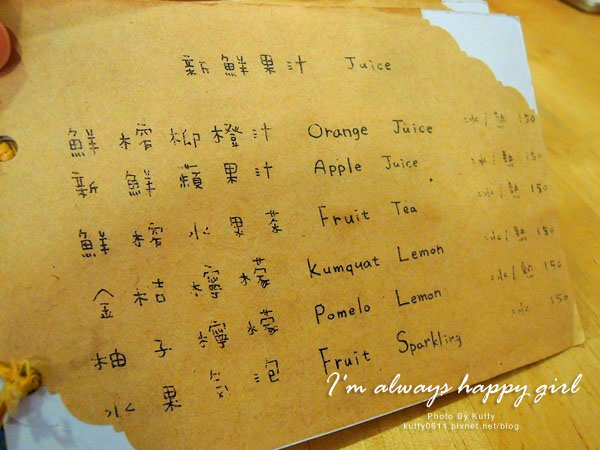 新鮮果汁 Juice
鮮榨柳橙汁 Orange Juice 冰/熱 150
新鮮蘋果汁 Apple Juice 冰/熱 150
鮮榨水果茶 Fruit Tea 冰/熱 150
金桔檸檬 Kumquat Lemon 冰/熱 150
柚子檸檬 Pomelo Lemon 冰/熱 150
水果氣泡 Fruit Sparkling 冰 150
I'm always happy girl
Photo By Kutty
kutty0611.pixnet.net/blog